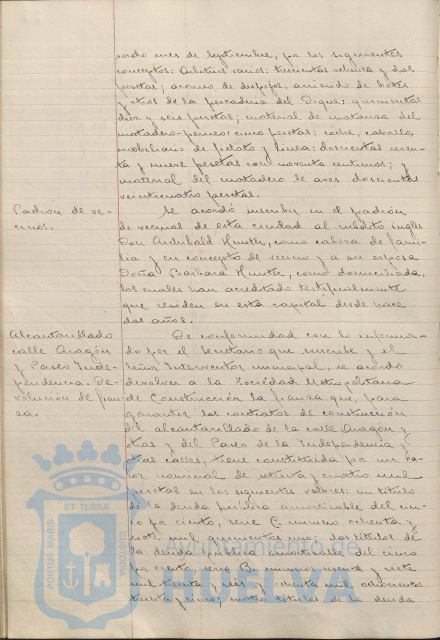 sado mes de Septiembre, por los siguientes
conceptos: Arbitrios varios: trescientas ochenta y dos
pesetas; acarreo de despojos, arriendo de botes
y otros de la pescadería del Dique: quinientas
diez y seis pesetas; material de matanza del
matadero-perneo: cinco pesetas; coche, caballo,
mobiliario de pelotó y línea: doscientas
ta y nueve pesetas con noventa centimos; y
material del matadero de aves doscientas
veinticuatro pesetas.
Padron de ve-
cinos.
Se acordó inscribir en el padrón
de vecinos de esta ciudad al subdito inglés
Don Archibald Hunter, como cabeza de fami-
lia y en concepto de vecino y a su esposa
Doña Barbara Hunter, como domiciliada,
los cuales han acreditado testificalmente
que residen en esta capital desde hace
dos años.
Alcantarillado
calle Aragón
y Paseo Inde-
pendencia. De-
volución de fian-
za.
De conformidad con lo informa-
do por el Secretario que suscribe y el
señor Interventor municipal, se acordó
devolver a la Sociedad Metropolitana
de Construcción la fianza que, para
garantir los contratos de construcción
del alcantarillado de la calle Aragón y
otras y del Paseo de la Independencia y
otras calles, tiene constituida por un va-
lor nominal de y cuatro mil
pesetas en los siguientes valores: un titulo
de la deuda pública amortizable del cin-
co por ciento, serie C. numero ochenta y
siete mil quinientos uno; dos titulos de
la deuda pública amortizable del cinco
por ciento, serie B. numeros y siete
mil treinta y seis y ochenta mil ochocientos
treinta y cinco; cuatro titulos de la deuda
Ayuntamiento de
HUELVA
PORTUS MARIS
ET TERRAE
CUSTODIA